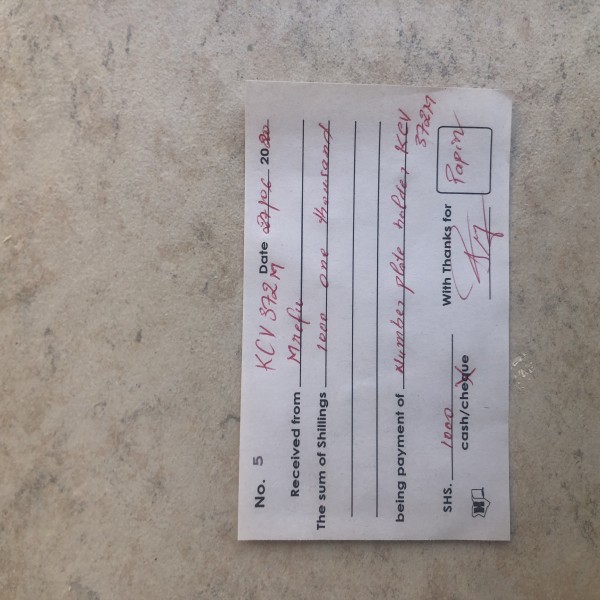 No. 5 KCV 372M Date 29/06 2020
Received from Mrefu
The sum of Shillings 1000 one thousand
being payment of Number plate holder KCV
372M
SHS. 1000 With Thanks for Papin
cash/cheque